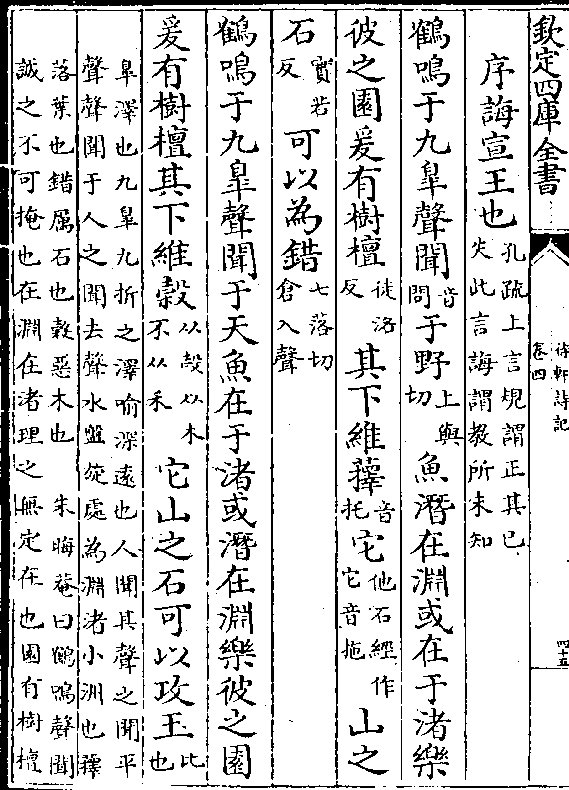 欽定四庫全書
待軒詩記
卷四
四十五
序誨宣王也孔疏上言規謂正其已失此言誨謂教所未知
鶴鳴于九臯聲聞音問于野上與切魚潛在淵或在于渚樂
彼之園爰有樹檀徒洛反其下維蘀音托它他石經作它音拖山之
石實若反可以為錯七落切倉入聲
鶴鳴于九臯聲聞于天魚在于渚或潛在淵樂彼之園
爰有樹檀其下維榖从㱿从木不从禾它山之石可以攻玉比也
臯澤也九臯九折之澤喻深遠也人聞其聲之聞平
聲聲聞于人之聞去聲水盤旋處為淵渚小洲也蘀
落葉也錯厲石也榖惡木也 朱晦菴曰鶴鳴聲聞
誠之不可掩也在淵在渚理之無定在也園有樹檀